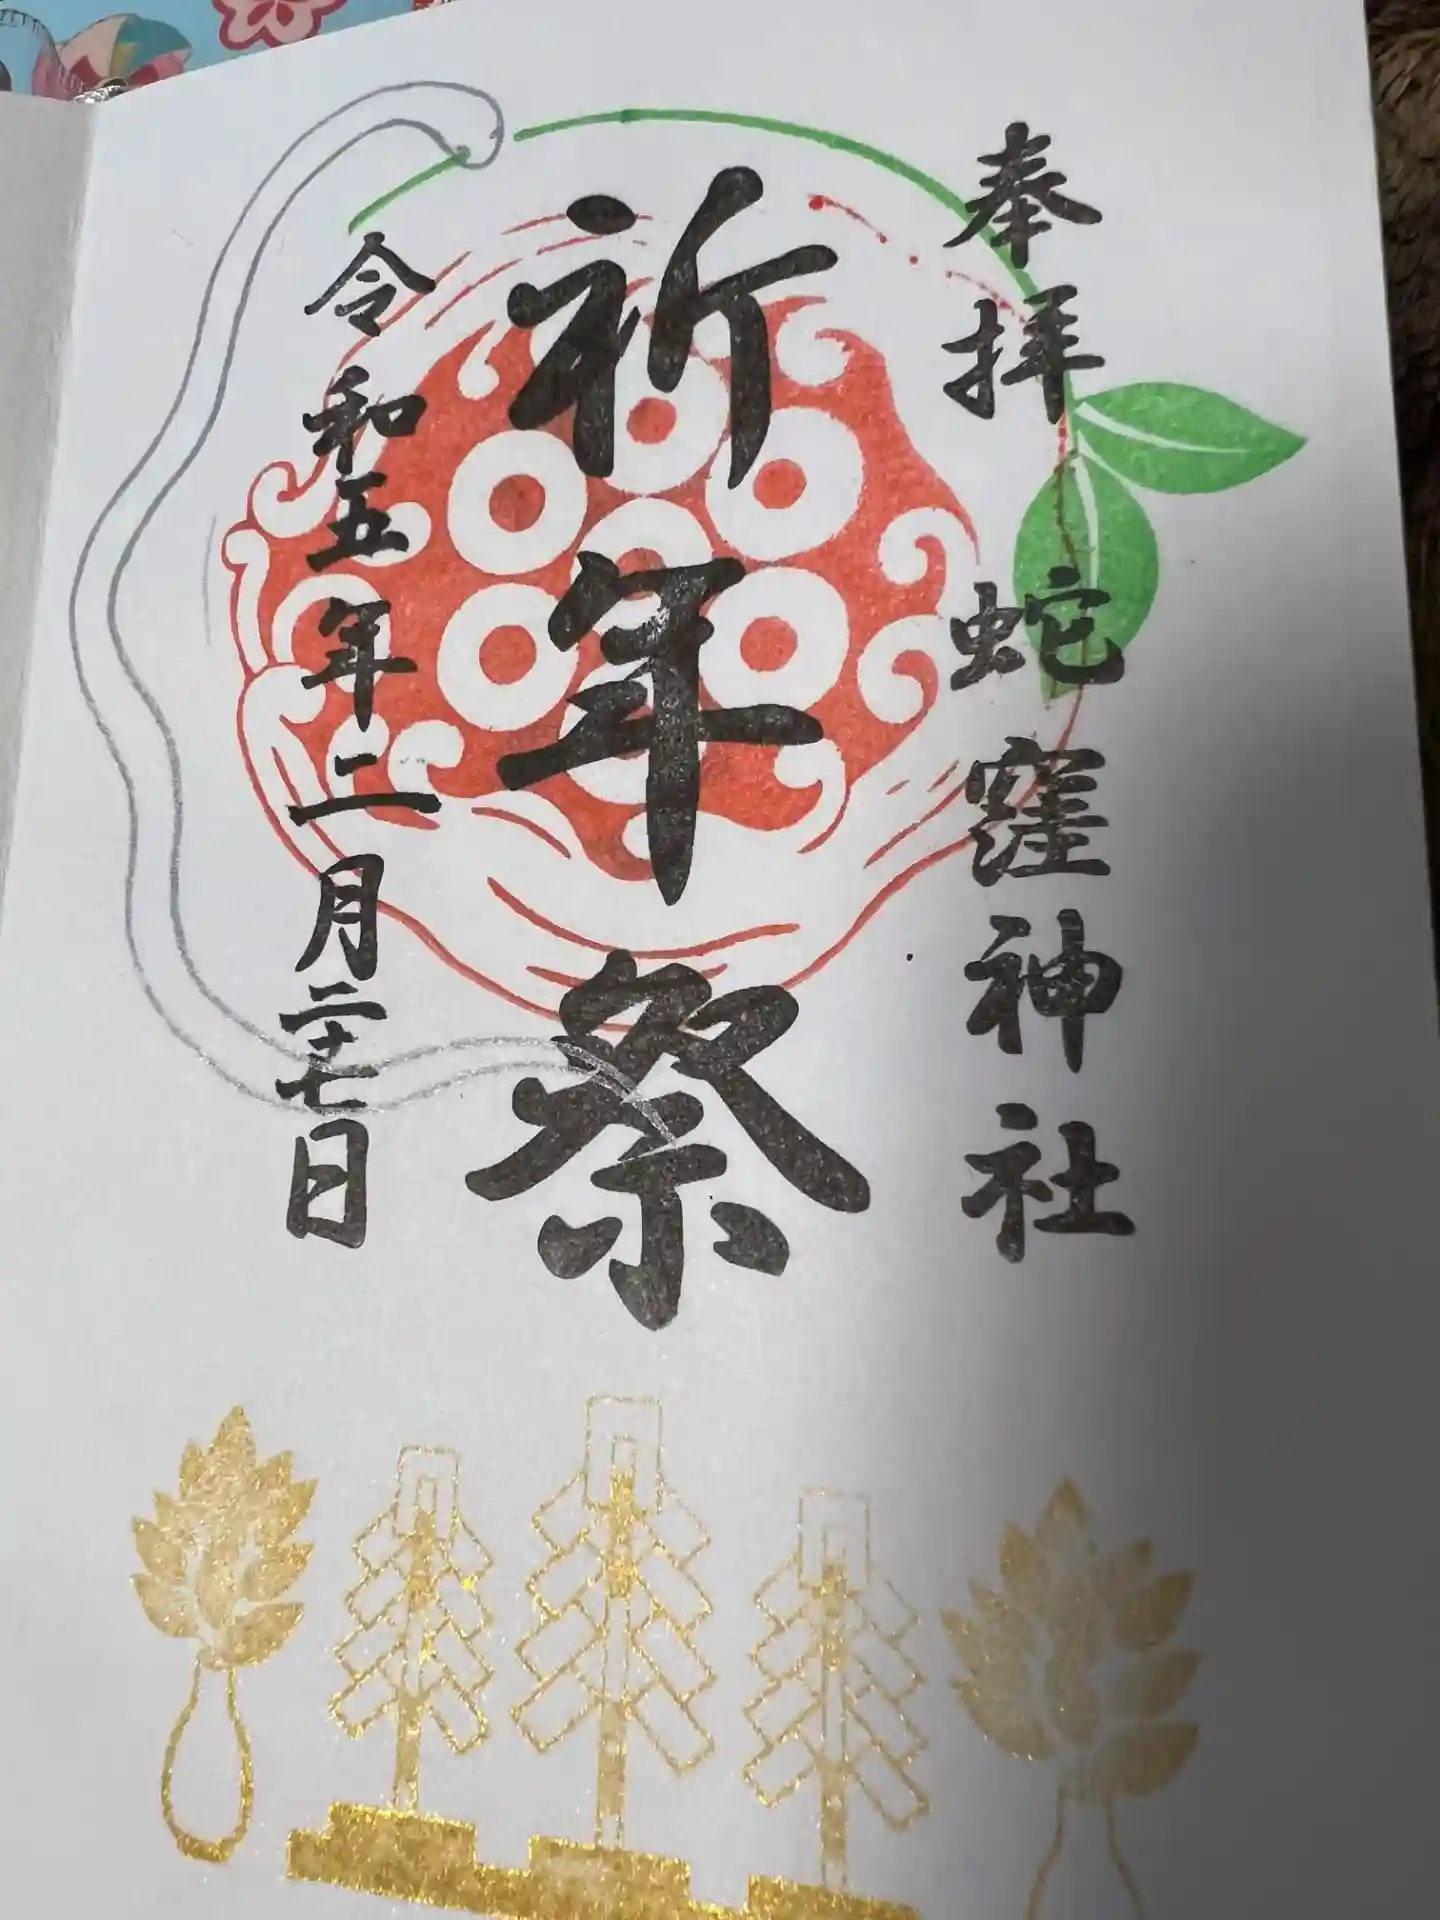 奉拝
蛇窪神社
祈年祭
令和五年二月二十七日